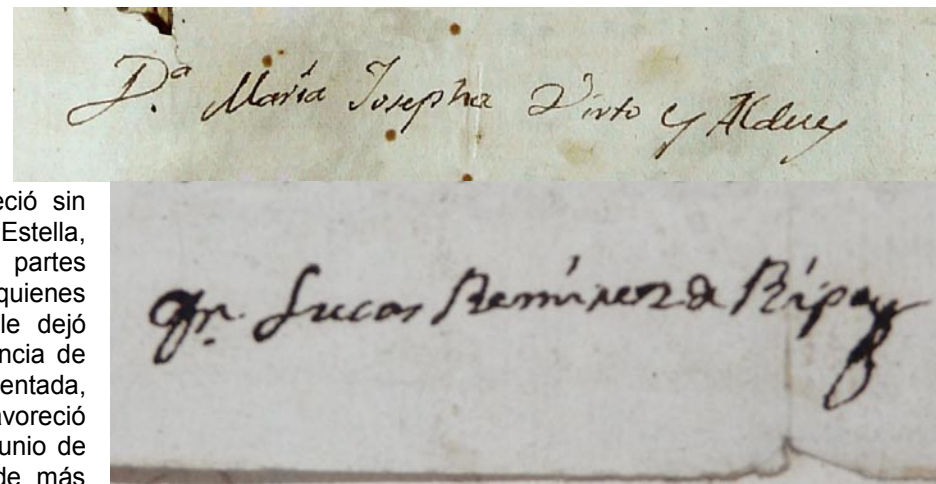 D.ª María Josepha Virto y Alduy
eció sin
Estella,
partes
quienes
le dejó
ncia de
entada,
avoreció
unio de
de más
Fr. Lucas Remírez de Rípa